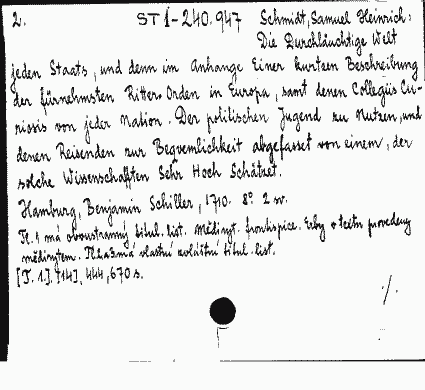 2. ST 1-240.947 Schmidt, Samuel Heinrich:
Die Durchläuchtige Welt
jeden Staats, und denn im Anhange Einer kurtzen Beschreibung
der fürnehmsten Ritter-Orden in Europa, samt denen Collegiis Cu-
riosis von jeder Nation. Der politischen Jugend zu Nutzen, und
denen Reisenden zur Beqvemlichkeit abgefasset von einem, der
solche Wissenschafften Sehr Hoch Schätzet.
Hamburg, Benjamin Schiller, 1710. 8° 2 sv.
Tl. 1 má oboustranný titul. list. Mědiryt. frontispice. Erby v textu provedeny
mědirytem. Tl. 2 a 3 má vlastní zvláštní titul. list.
[T. 1.]: [14], 444, 670 s.
./.